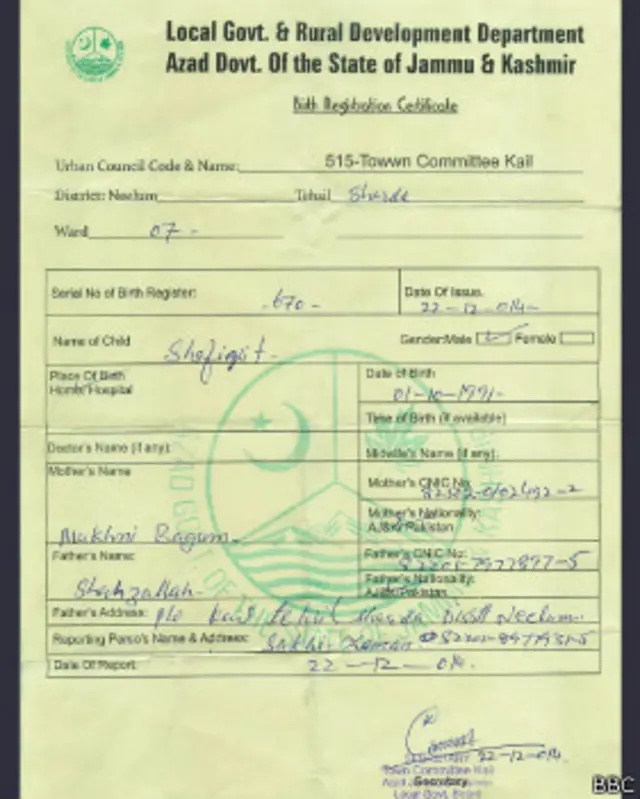 Local Govt. & Rural Development Department
Azad Dovt. Of the State of Jammu & Kashmir
Birth Registration Certificate
Urban Council Code & Name: 515-Towwn Committee Kail
District: Neelum Tehsil Sharda
Ward 07 -
Serial No of Birth Register: - 670 - Date Of Issue. 22-12-014-
Name of Child Shafiqat - Gender:Male Female
Place Of Birth
Home/Hospital
Date of Birth
01-10-1991-
Time of Birth (if available)
Doctor's Name (if any): Midwife's Name (if any):
Mother's Name
Mukhni Bagum -
Mother's CNIC No.
Mother's Nationality:
AJ&K/Pakistan
Father's Name:
Shahzallah -
Father's CNIC No:
Father's Nationality:
AJ&K/Pakistan
Father's Address: Distt Neelum.
Reporting Perso's Name & Address:
Date Of Report: 22-12-014.
22-12-014
Town Committee Kail
Secretary
Local Govt. Board
BBC